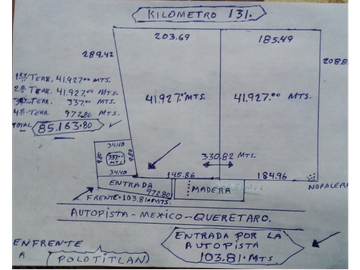 KILOMETRO 131.
203.69 185.49
289.42
1ER TERR. 41,927.00 MTS.
2º TERR. 41,927.00 MTS.
TERR. 337.00 MTS.
4º TERR. 972.80 MTS.
TOTAL 85.163.80
41.927.00 MTS. 41,927.00 MTS.
34.40
9.80 337.00 9.80
34.40
330.82 MTS.
145.86 184.96
NOPALERA
ENTRADA 972.80 MADERA
FRENTE-103.81 MTS.
AUTOPISTA-MEXICO-QUERETARO.
ENFRENTE
A POLOTITLAN
ENTRADA POR LA
AUTOPISTA
103.81 MTS.